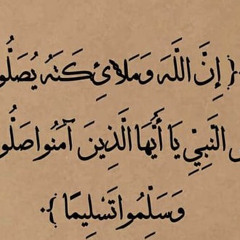 ﴿ إِنَّ اللَّهَ وَمَلَائِكَتَهُ يُصَلُّو
النَّبِيِّ يَا أَيُّهَا الَّذِينَ آمَنُوا صَلُّو
وَسَلِّمُوا تَسْلِيمًا ﴾